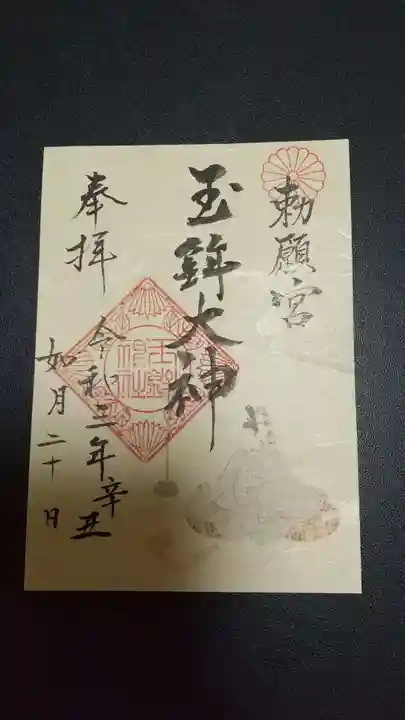 勅願宮
玉鉾大神
玉鉾神社
奉拝
令和三年辛丑
如月二十日